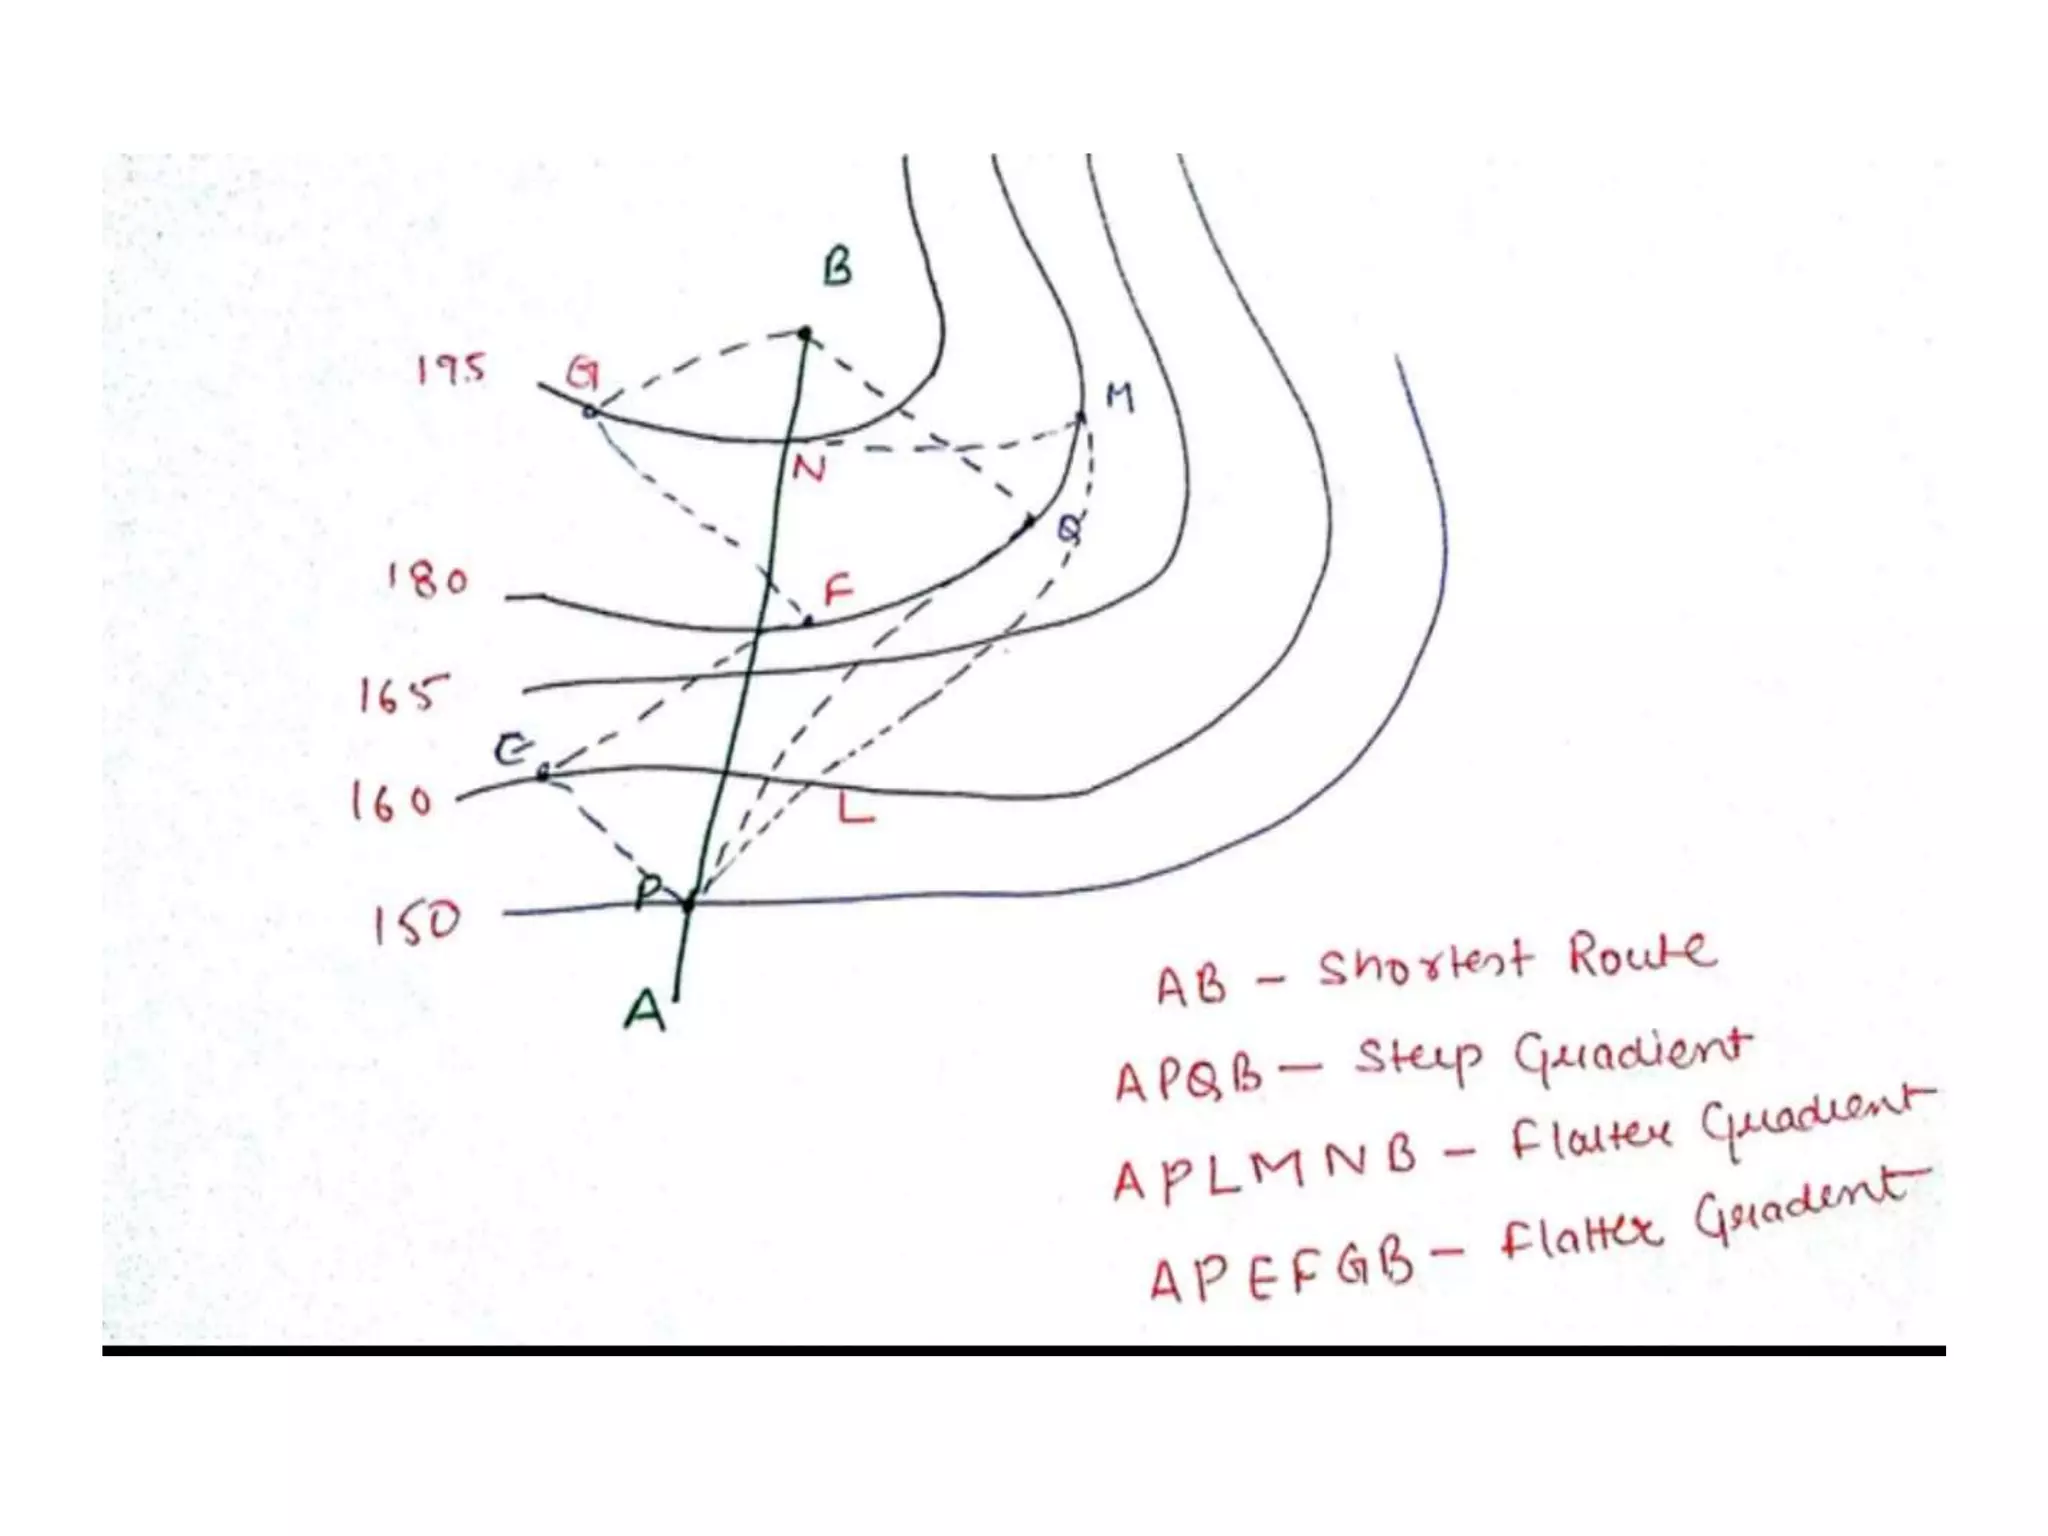 B
195 G
M
N
Q
180 F
165
E
160 L
P
150
A
AB - Shortest Route
APQB - Steep Gradient
APLMNB - Flatter Gradient
APEFGB - Flatter Gradent